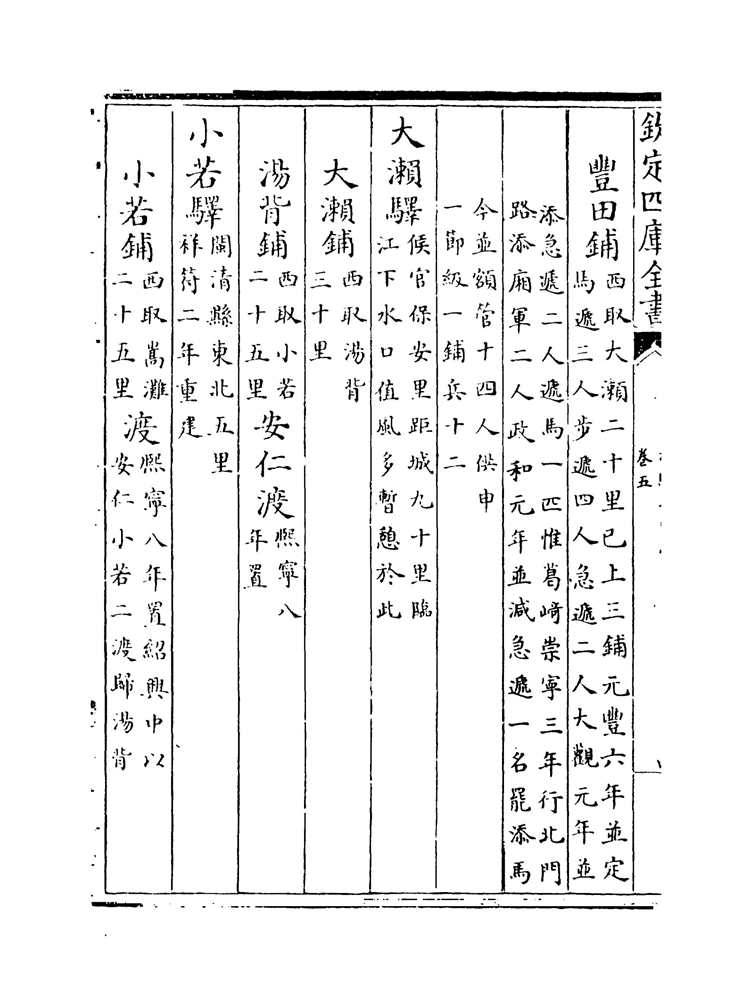 欽定四庫全書
卷五
豐田鋪西取大瀨二十里已上三鋪元豐六年並定
馬遞三人步遞四人急遞二人大觀元年並
添急遞二人遞馬一匹惟葛﨑崇寧三年行北門
路添廂軍二人政和元年並減急遞一名罷添馬
今並額管十四人供申
一節級一鋪兵十二
大瀨驛候官保安里距城九十里臨
江下水口值風多暫憩於此
大瀨鋪西取湯背
三十里
湯背鋪西取小若
二十五里
安仁渡熙寧八
年置
小若驛閩清縣東北五里
祥符二年重建
小若鋪西取嵩灘
二十五里
渡熙寧八年置紹興中以
安仁小若二渡歸湯背